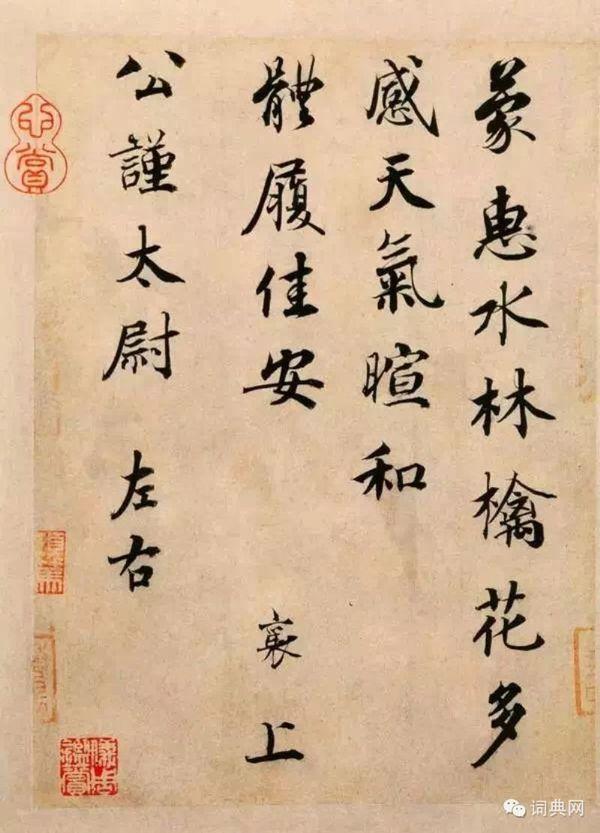 蒙惠水林檎花多
感天氣暄和
體履佳安 襄上
公謹太尉 左右
词典网